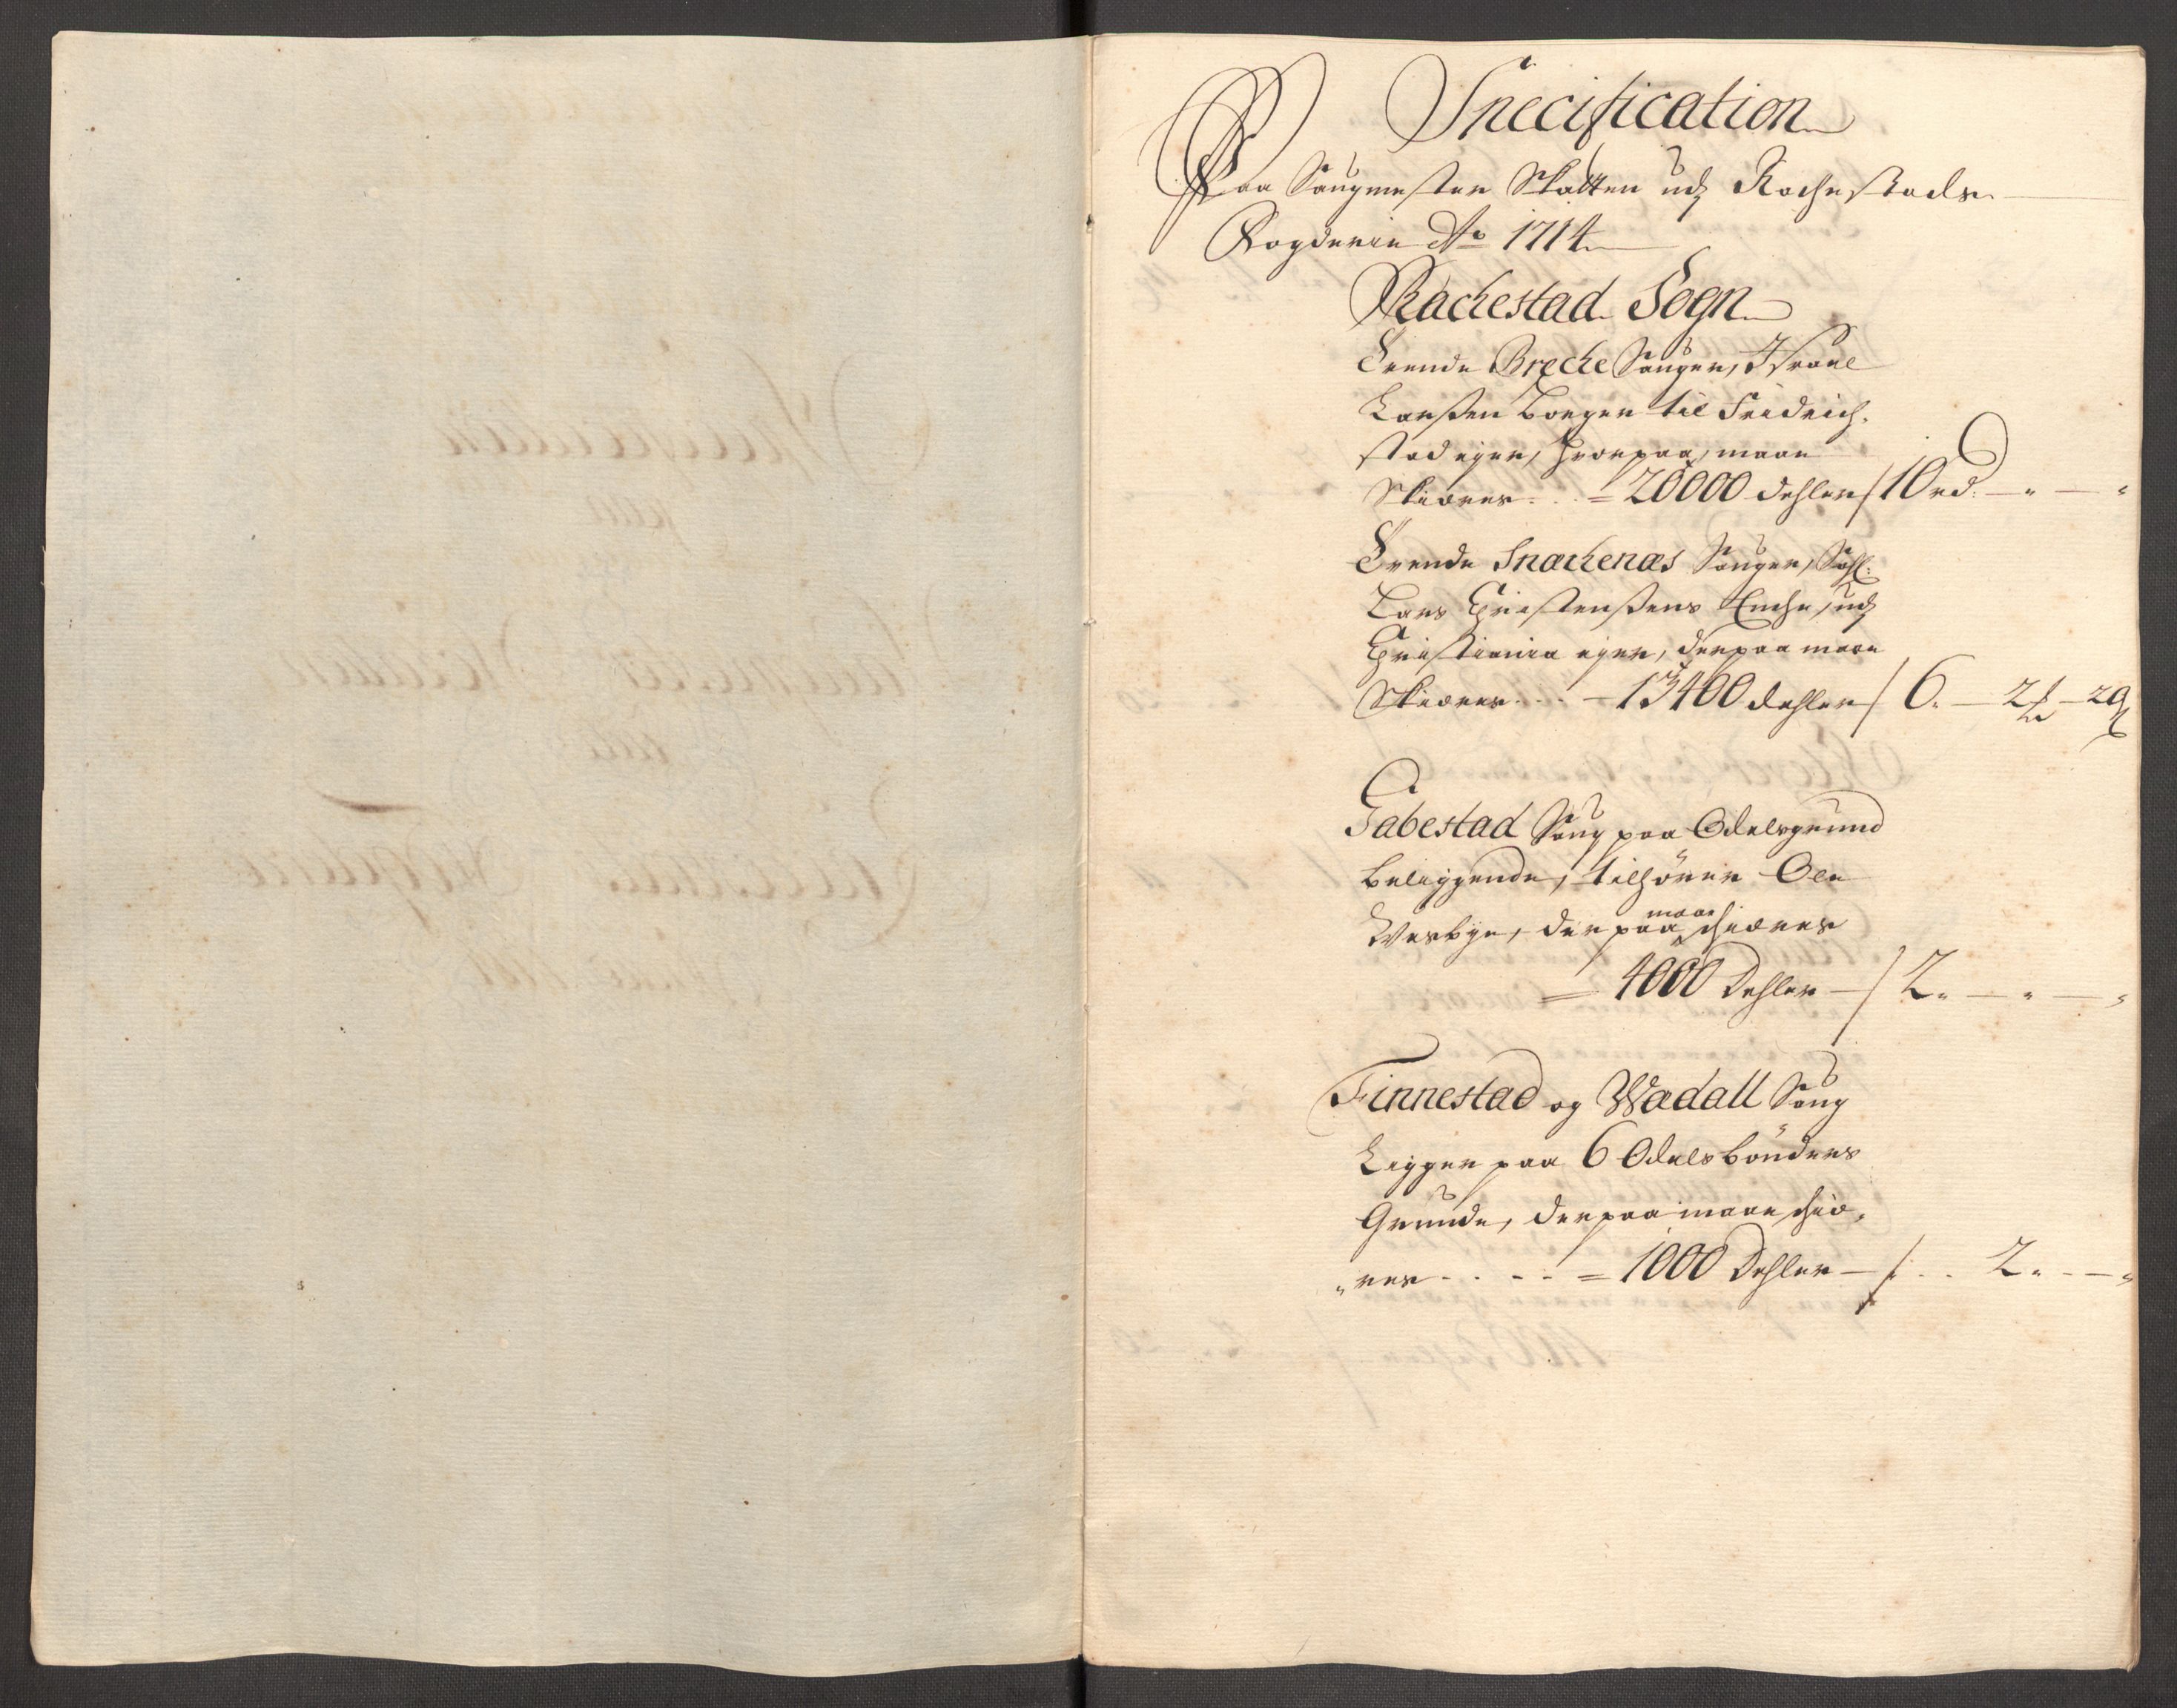 Specification
Paa Saugmester Skatten udj Rachestads
Fogderie Ao 1714
Rachestad Sogn
Trende Breche Sauger, Israel
Larsen Borger til Fridrich,
stad eyer, hvorpaa maae
Skieres . . . = 20000 dehler / 10 rd. — " — "
Trende Snachenæs Sauger, Sahl:
Lars Christensens Enche, udj
Christiania eyer, derpaa maae
Skieres . . . — 13400 dehler / 6. — 2 — 29
Tabestad Saug paa Odelsgrund
beliggende, tilhörer Ole
Wesbye, der paa maae schieres
= 4000 Dehler — / 2. — " — "
Finnestad og Wadall Saug
Ligger paa 6 Odelsbönders
Grunde, derpaa maae schie,
"res . . . . = 1000 Dehler — / . . 2. — "